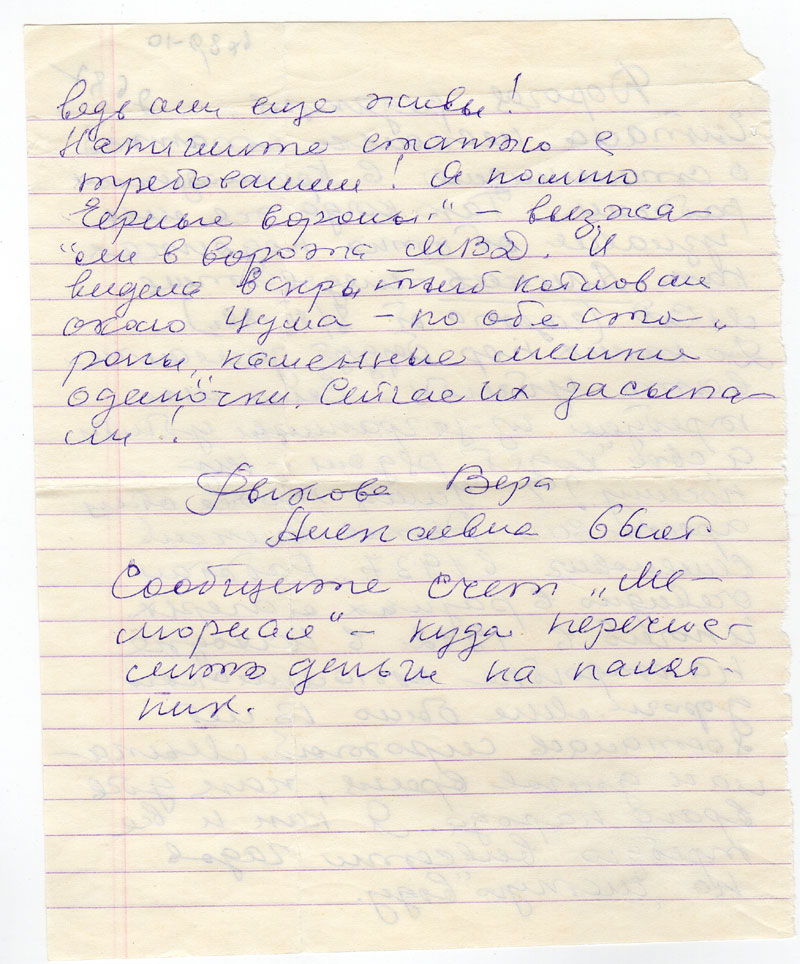 ведь они еще живы!
Напишите статью с
требованием! Я помню
Черные вороны" – выезжа–
"ли в ворота МВД. И
видела вскрытый котлован
около Цума – по обе сто–
роны „каменные мешки
одиночки. Сейчас их засыпа–
ли"!
Рыжова Вера
Алексеевна 66 лет
Сообщите счет „Ме–
мориал" – куда перечис–
лить деньги на памят–
ник.